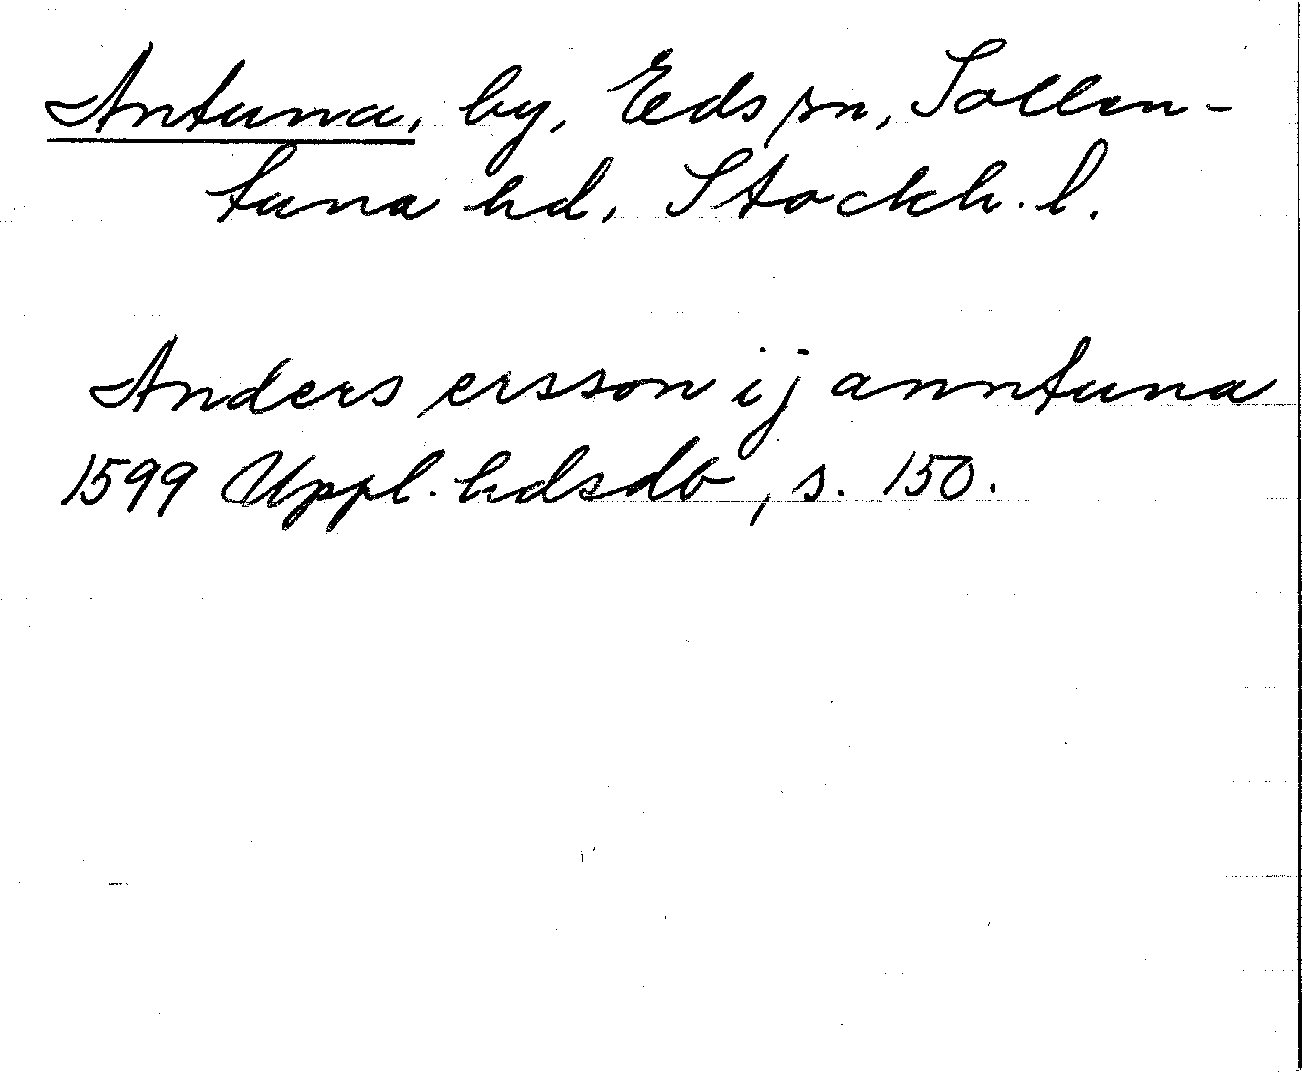 Antuna, by, Eds sn, Sollen-
tuna hd, Stockh. l.
Anders ersson ij anntuna
1599 Uppl. hdsdb, s. 150.